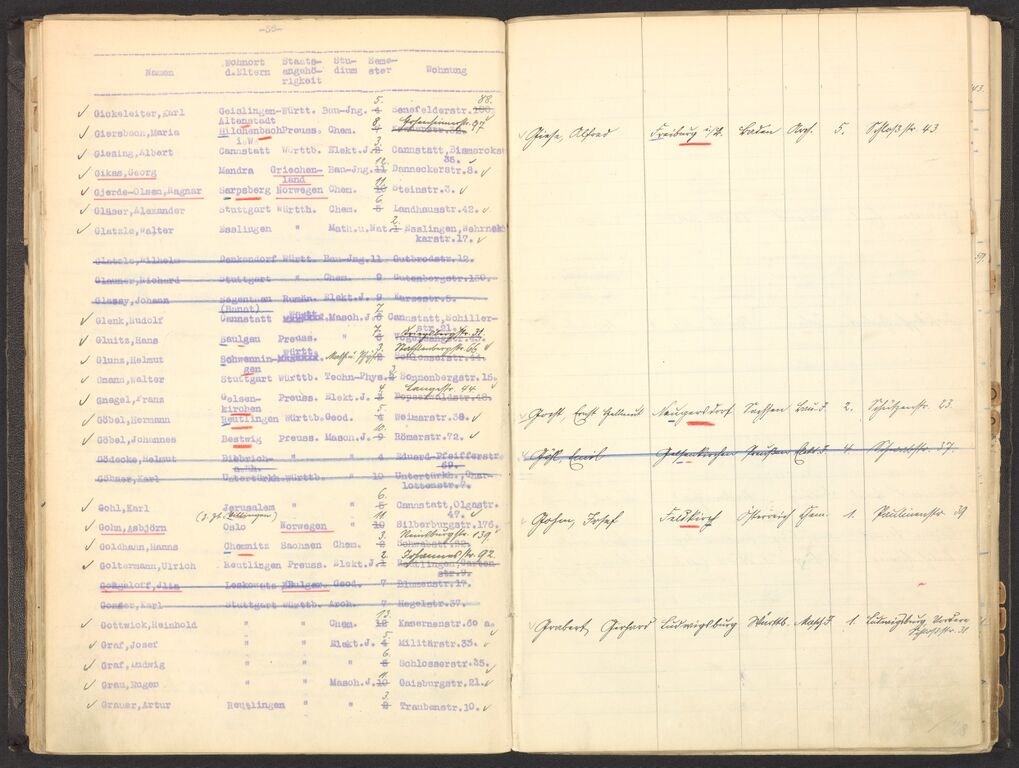 -58-
Namen Wohnort d.Eltern Staats-angehö-rigkeit Stu-dium Seme-ster Wohnung
5. 88.
Gickeleiter,Karl Geislingen-Altenstadt Württ. Bau-Jng. 4 Senefelderstr.
Giersbach,Maria Hilchenbach i.W. Preuss. Chem. 8.
Giesing,Albert Cannstatt Württb. Elekt.J. Cannstatt,Bismarckstr 35.
Gikas,Georg Mandra Griechen-land Bau-Jng. 12. 11 Danneckerstr.8.
Gjerde-Olsen,Ragnar Sarpsberg Norwegen Chem. 11. 10 Steinstr.3.
Gläser,Alexander Stuttgart Württb. Chem. 6. 5 Landhausstr.42.
Glatzle,Walter Esslingen " Math.u.Nat. 2. 1 Esslingen,Wehrnec karstr.17.
Glatzle,Wilhelm Denkendorf Württ. Bau-Jng.11 Gutbrodstr.12.
Glauner,Richard Stuttgart " Chem. 9 Gutenbergstr.130.
Glassy,Johann Segenthau (Banat) Rumän. Elekt.J. 9
Glenk,Rudolf Cannstatt Württ. Masch.J. 7. Cannstatt,Schiller-str.21.
Gluitz,Hans Saulgau Preuss. " 7. 6 Vogelsangstr.
Glunz,Helmut Schwennin-gen Württ. Math u Phys 3. 2 Schlosserstr.
Gmann,Walter Stuttgart Württb. Techn-Phys. Sonnenbergstr.15.
Gnegel,Franz Gelsen-kirchen Preuss. Elekt.J. 4. 3 Langestr. 44.
Göbel,Hermann Reutlingen Württb.Geod. 5. 4 Weimarstr.38.
Göbel,Johannes Bestwig Preuss. Masch.J. 10. 9 Römerstr.72.
Gödecke,Helmut Biebrich-a.Rh. " " 4 Eduard-Pfeifferstr 69.
Göhner,Karl Untertürkh. Württb. " 10 Untertürkh.,Char-lottenstr.7.
Gohl,Karl Jerusalem " " 6. 5 Cannstatt,Olgastr. 47.
Gohn,Asbjörn Oslo Norwegen " 11. 10 Silberburgstr.176.
Goldhahn,Hanns Chemnitz Sachsen Chem. 3. 2 139.
Goltermann,Ulrich Reutlingen Preuss. Elekt.J. 2. 1 Johannesstr. 92.
Gongaloff,Jlia Bulgar. Geod. 7 Blumenstr.17.
Gonser,Karl Stuttgart Württb. Arch. 7 Hegelstr.37.
Gottwick,Reinhold " " Chem. 13. 12 Kasernenstr.60 a.
Graf,Josef " " Elekt.J. 5. 4 Militärstr.33.
Graf,Ludwig " " " 6. 5 Schlosserstr.25.
Grau,Eugen " " Masch.J. 11. 10 Gaisburgstr.21.
Grauer,Artur Reutlingen " " 3. 2 Traubenstr.10.
Giese, Alfred Freiburg i/B. Baden Arch. 5. Schloßstr 43
Gorst, Ernst Hellmut Neugersdorf Sachsen Bau.J. 2. Schützenstr. 23
Göhl, Emil Gelsenkirchen Preußen Elekt.J 4 17.
Gohm, Josef Feldkirch Österreich Chem. 1. Paulinenstr. 39
Grabert, Gerhard Ludwigsburg Württb. Masch.J 1. Ludwigsburg, Vordere Schloßstr. 31